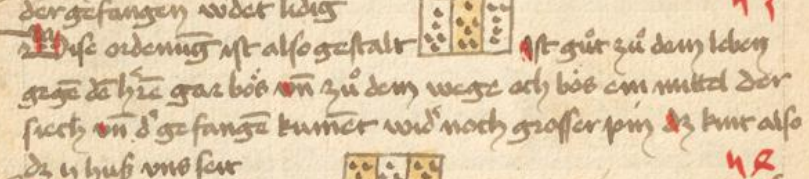 der gefangen wdet lidig
Dise ordenūg ist also gestalt ist gůt zů dem leben
gegē dē hrē gar bős vn̄ zů dem wege och bős ein mittel der
siech vn̄ d' gefangē kumēt wid' noch grosser pin dz kint also
dz h huß vns seit